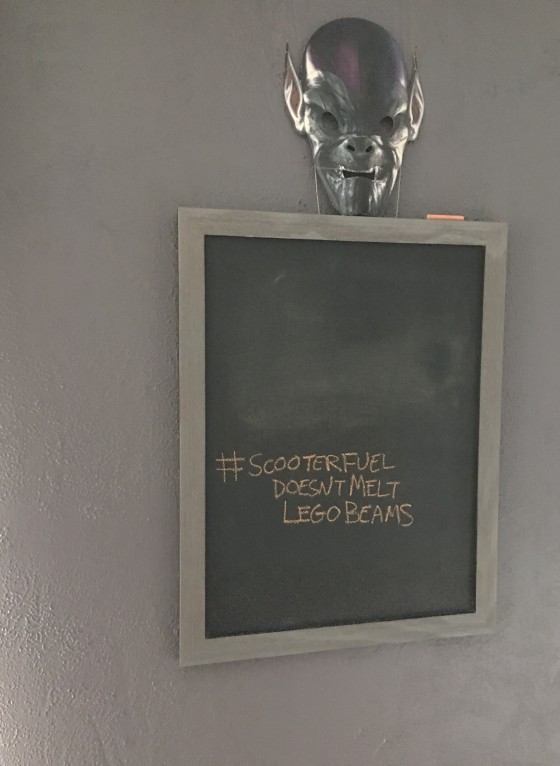 #SCOOTERFUEL
DOESNT MELT
LEGO BEAMS